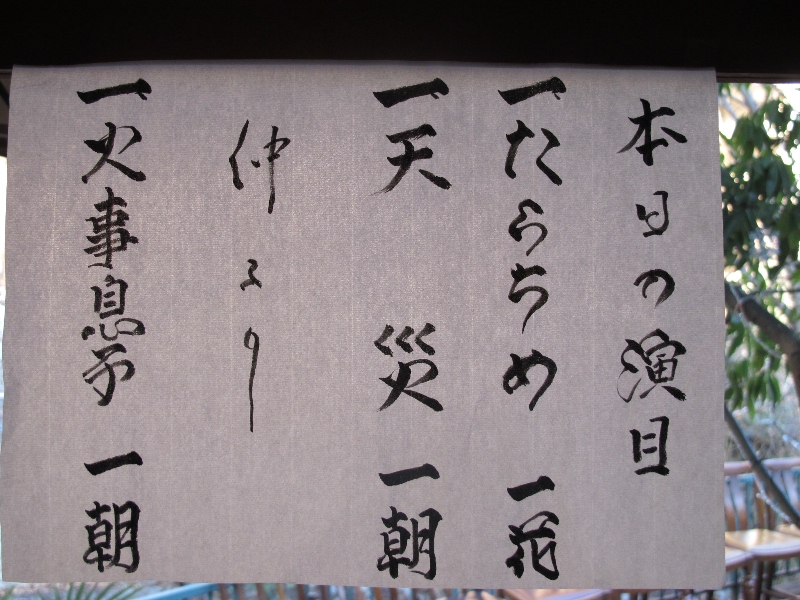 本日の演目
一 たらちめ 一花
一 天災 一朝
仲入り
一 火事息子 一朝